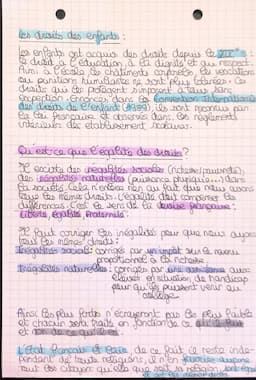 Les droits des enfants :
Les enfants ont acquis des droits depuis le XIX
le droit à l'éducation, à la dignité et au respect.
Ainsi à l'école les châtiments corporels, les vexations
ou punitions humiliantes ne sont plus tolérés. Ces
droits qui les protègent s'imposent à tous sans
exception. Enoncés dans la Convention Internationale
des droits de l'enfant (1989), ils sont reconnus par
la loi française et observés dans les règlements
intérieurs des établissements scolaires.
Qu'est-ce que l'égalité des droits ?
Il existe des inégalités sociales (richesse/pauvreté),
des inégalités naturelles (puissance physique...) dans
la société. Cela n'enlève rien au fait que nous ayons
tous les mêmes droits. L'égalité doit compenser les
différences. C'est le sens de la devise française :
Liberté, égalité, fraternité.
Il faut corriger les inégalités pour que nous ayons
tous les mêmes droits :
Inégalités sociales : corrigés par un impôt sur le revenu
proportionnel à la richesse
Inégalités naturelles : corrigés par une aux
élèves en situation de handicap
pour qu'ils puissent venir au
collège.
Ainsi les plus forts n'écraseront pas les plus faibles
et chacun sera traité en fonction de ce
L'Etat français est laïc de ce fait il reste indé-
pendant de toute religion, il n'en favorise aucune
tout les citoyens qu'elle que soit la religion ont